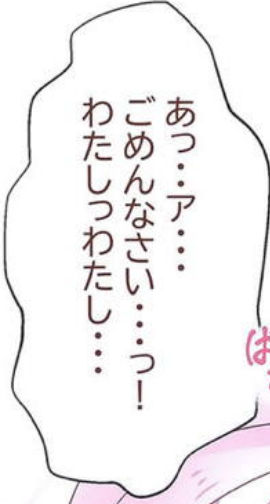 あっ・・ア・・・
ごめんなさい・・・っ！
わたしっわたし・・・
は